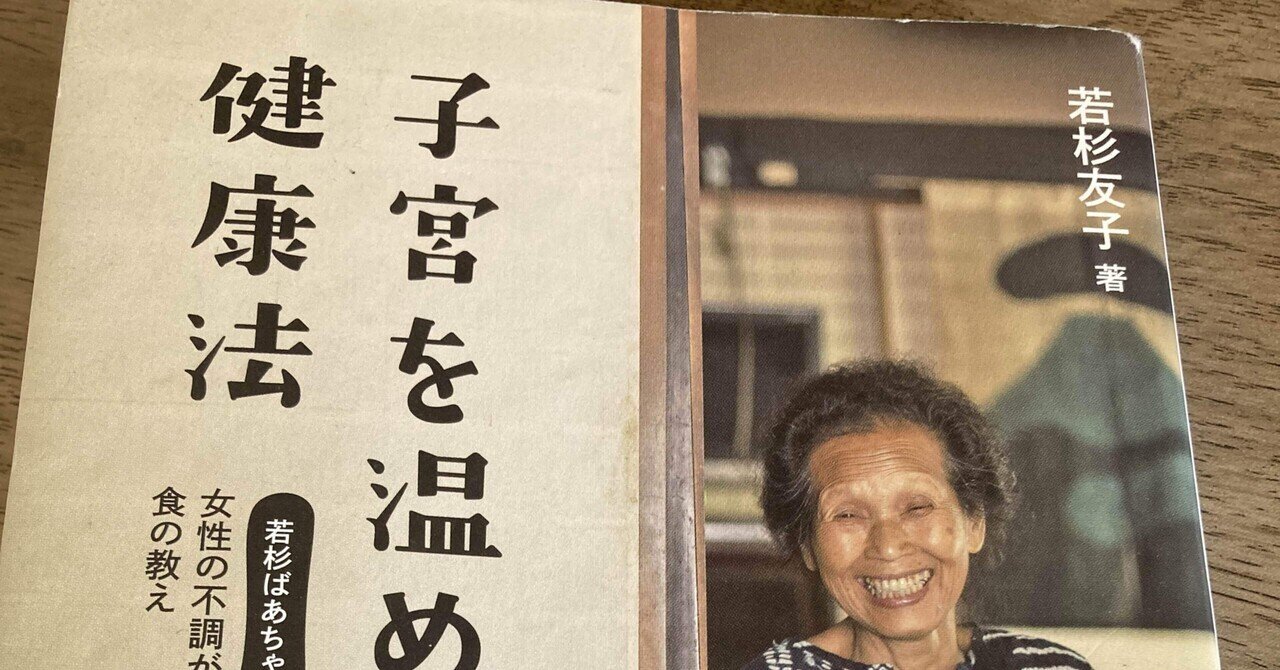 子宮を温め
健康法
若杉ばあちゃ
女性の不調が
食の教え
若杉友子 著